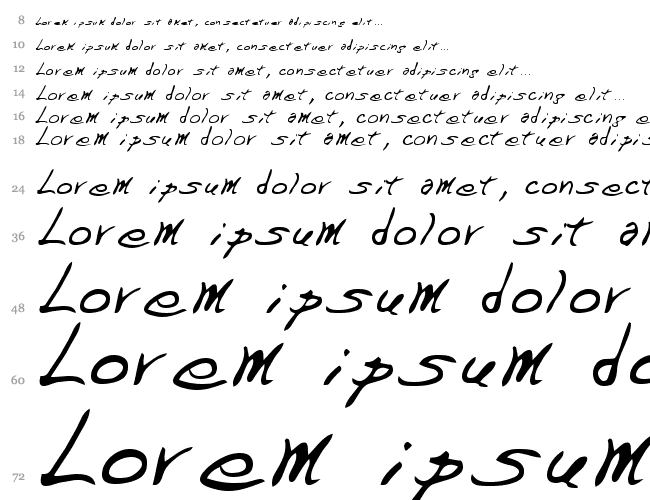 8 Lorem ipsum dolor sit amet, consectetuer adipiscing elit...
10 Lorem ipsum dolor sit amet, consectetuer adipiscing elit...
12 Lorem ipsum dolor sit amet, consectetuer adipiscing elit...
14 Lorem ipsum dolor sit amet, consectetuer adipiscing elit...
16 Lorem ipsum dolor sit amet, consectetuer adipiscing e
18 Lorem ipsum dolor sit amet, consectetuer adipis
24 Lorem ipsum dolor sit amet, consect
36 Lorem ipsum dolor sit am
48 Lorem ipsum dolor
60 Lorem ipsum do
72 Lorem ipsum